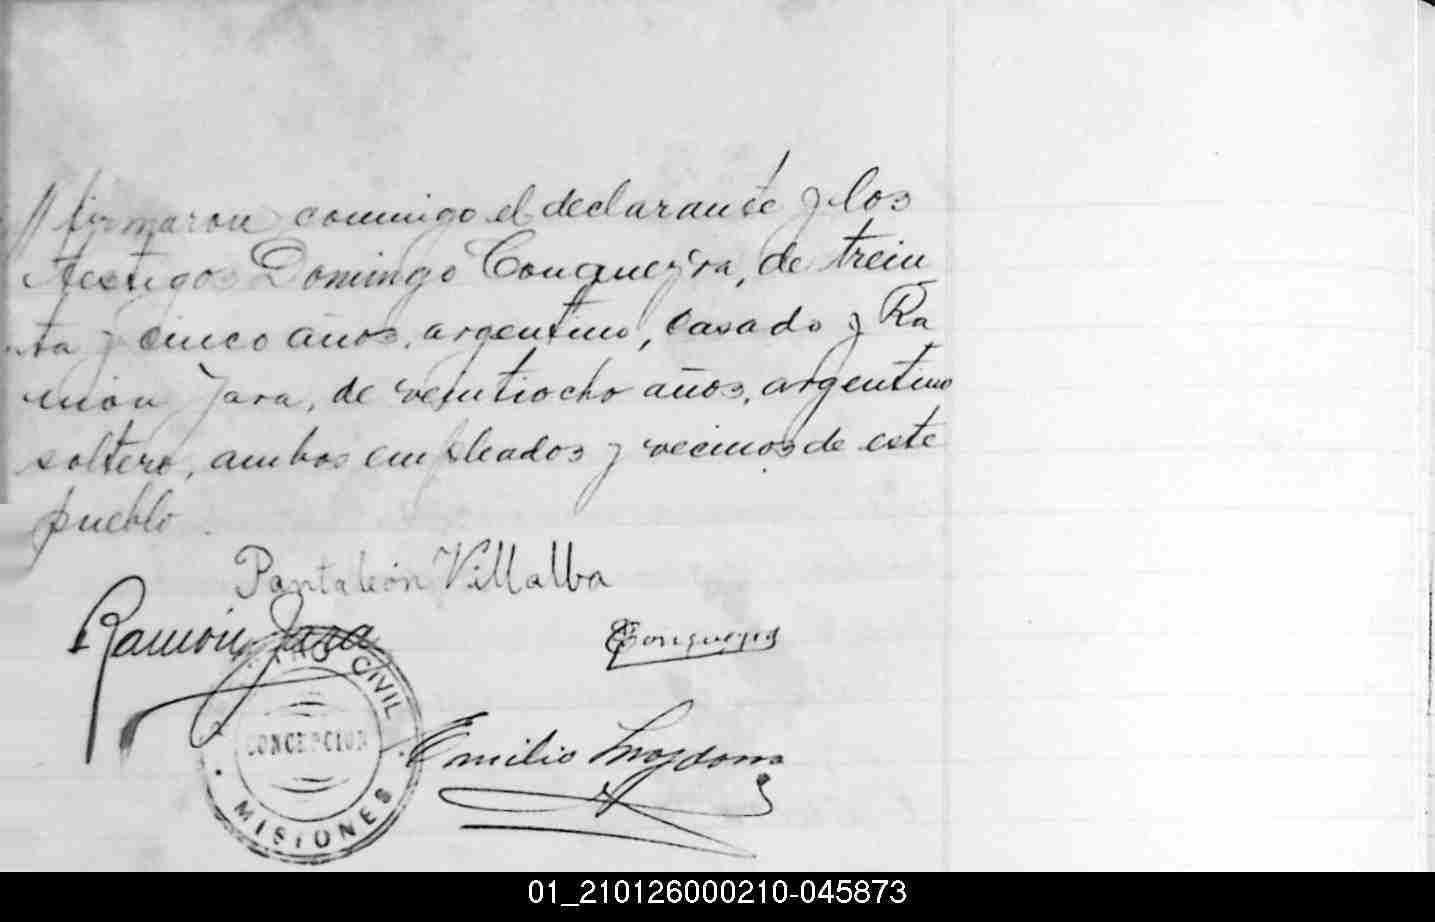 // firmaron conmigo el declarante y los
testigos Domingo Conqueyra, de trein
ta y cinco años, argentino, casado y Ra
món Jara, de veintiocho años, argentino
soltero, ambos empleados y vecinos de este
pueblo.
Pantaleón Villalba
Ramón Jara
CIVIL
CONCEPCION
MISIONES
Emilio
01_210126000210-045873